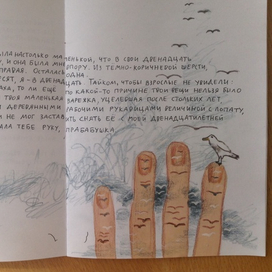 была настолько маленькой, что в свои двенадцать
, и она была мне впору. Из темно-коричневой шерсти,
плавая. Осталась одна.
сят, я - в двенадцать. Тайком, чтобы взрослые не увидели.
ака, то ли еще по какой-то причине твои вещи нельзя было
твоя маленькая варежка, уцелевшая после стольких лет
и деревянными рабочими рукавицами величиной с лопату,
не мог заставить снять её с моей двенадцатилетней
ала тебе руку, прабабушка.